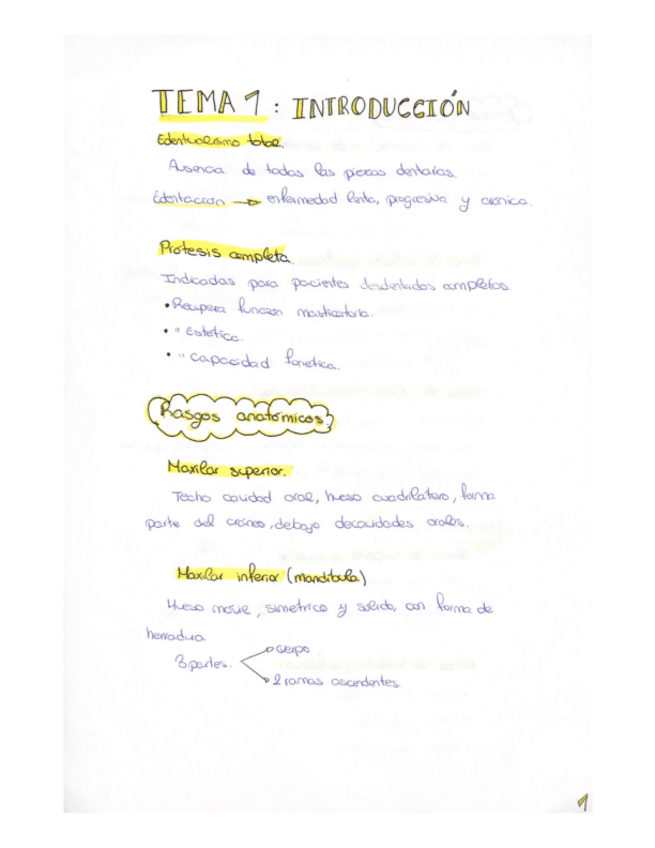 TEMA 1 : INTRODUCCIÓN
Edentualismo total.
Ausencia de todas las piezas dentarias.
Edentación → enfermedad lenta, progresiva y crónica.
Prótesis completa.
Indicadas para pacientes desdentados completos.
• Recupera función masticatoria.
• " Estética.
• " capacidad fonética.
Rasgos anatómicos:
Maxilar superior.
Techo cavidad oral, hueso cuadrilátero, forma
parte del cráneo, debajo de cavidades orales.
Maxilar inferior (mandíbula)
Hueso móvil, simétrico y sólido, con forma de
herradura
3 partes.
cuerpo
2 ramas ascendentes.
1